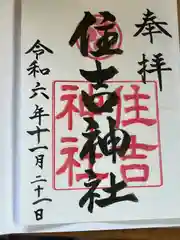 奉拝
住吉神社
住吉神社
令和六年十一月二十一日